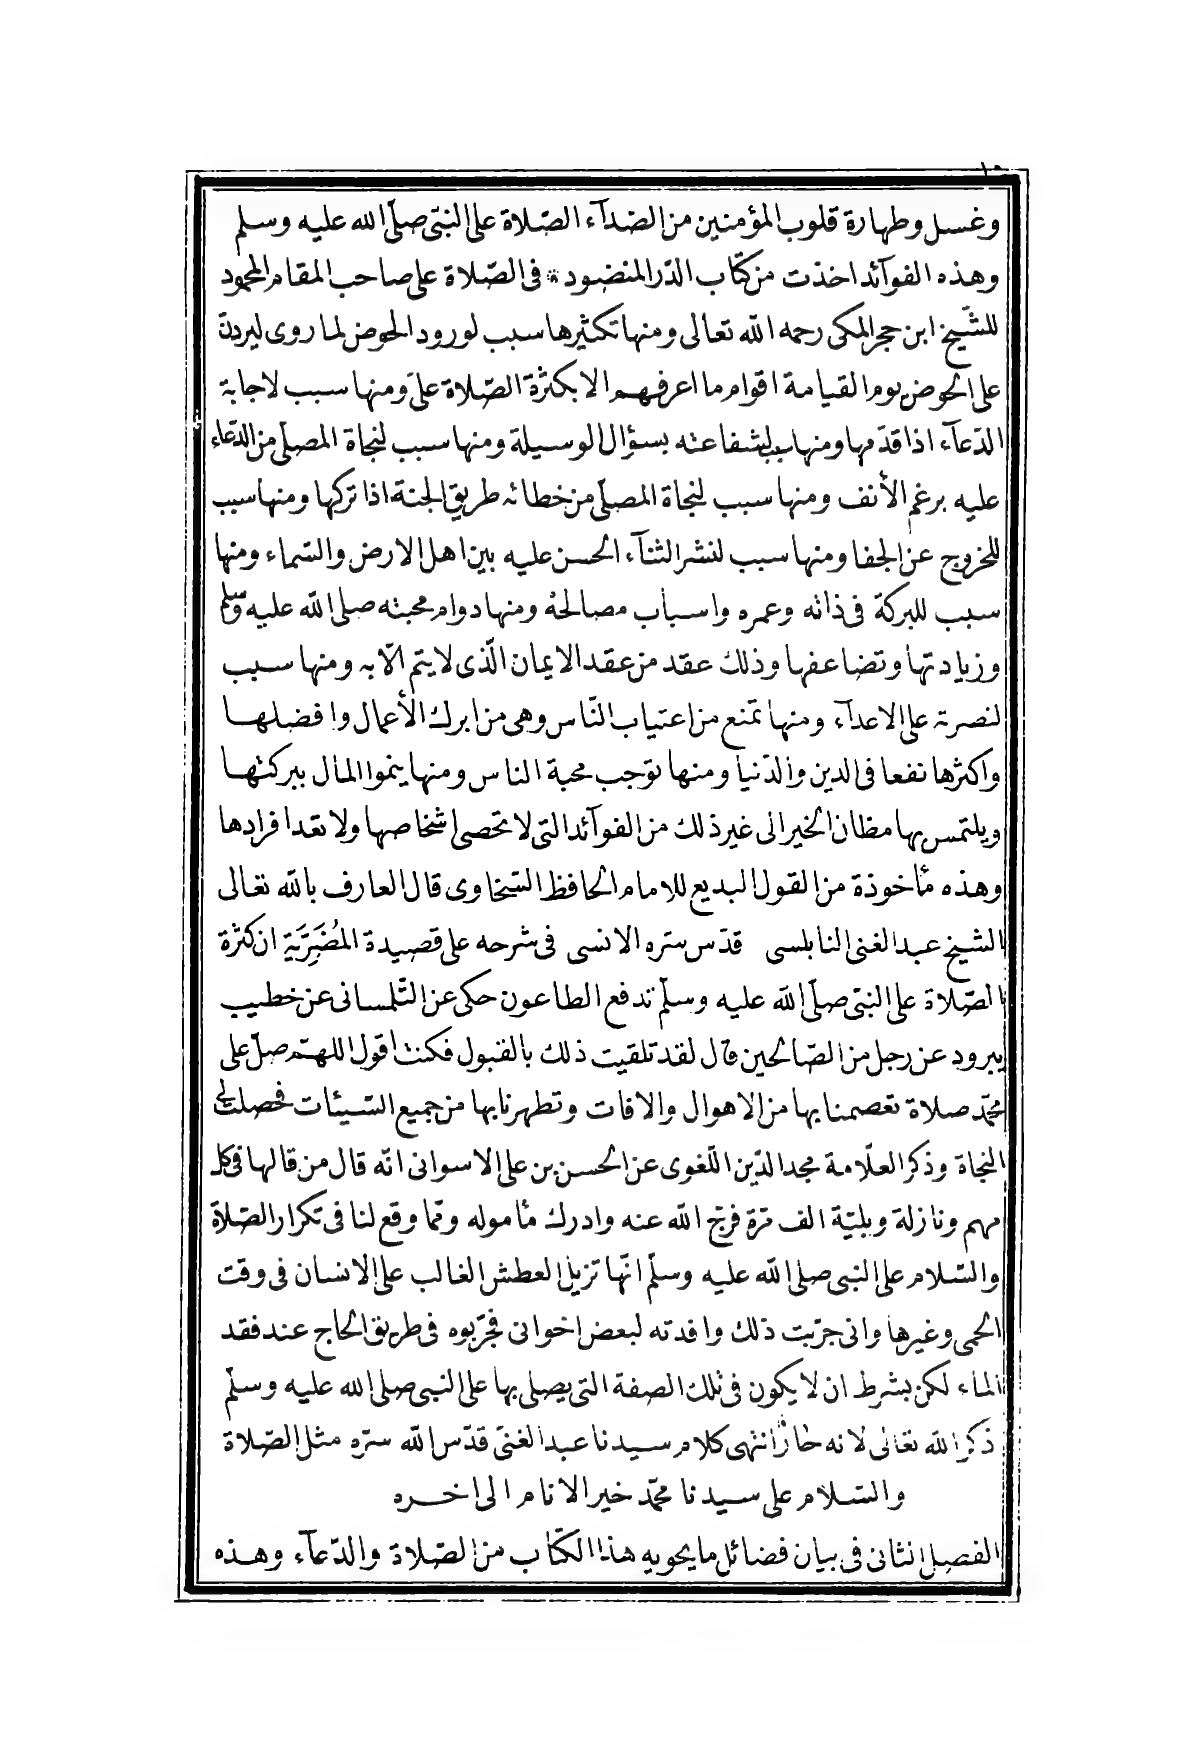 ١٠
وغسل وطهارة قلوب المؤمنين من الصدآء الصّلاة على النبىّ صلّى الله عليه وسلم
وهذه الفوآئد اخذت من كتّاب الدّر المنضود * فى الصّلاة على صاحب المقام المحمود
للشّيخ ابن حجر المكى رحمه الله تعالى ومنها تكثيرها سبب لورود الحوض لما روى ليردن
على الحوض يوم القيامة اقوام ما اعرفهم الا بكثرة الصّلاة علىّ ومنها سبب لاجابة
الدّعآء اذا قدّمها ومنها سبب لشفاعته بسؤال الوسيلة ومنها سبب لنجاة المصلّى من الدّعاء
عليه برغم الأنف ومنها سبب لنجاة المصلّى من خطائه طريق الجنة اذا تركها ومنها سبب
للخروج عن الجفا ومنها سبب لنشر الثنآء الحسن عليه بين اهل الارض والسّماء ومنها
سبب للبركة فى ذاته وعمره واسباب مصالحه ومنها دوام محبته صلى الله عليه وسلّم
وزيادتها وتضاعفها وذلك عقد من عقد الايمان الّذى لا يتم الّا به ومنها سبب
لنصرته على الاعدآء ومنها تمنع من اعتياب النّاس وهى من ابرك الأعمال وافضلها
واكثرها نفعا فى الدين والدّنيا ومنها توجب محبة الناس ومنها ينموا المال ببركتها
ويلتمس بها مظان الخير الى غير ذلك من الفوآئد التى لا تحصى اشخاصها ولا تعد افرادها
وهذه مأخوذة من القول البديع للامام الحافظ السّخاوى قال العارف بالله تعالى
الشيخ عبد الغنى النابلسى قدّس سرّه الانسى فى شرحه على قصيدة المُضَرِيَّة ان كثرة
الصّلاة على النبىّ صلّى الله عليه وسلّم تدفع الطاعون حكى عن التّلمسانى عن خطيب
يبرود عن رجل من الصّالحين قال لقد تلقيت ذلك بالقبول فكنت اقول اللهمّ صلّ على
محمّد صلاة تعصمنا بها من الاهوال والافات وتطهرنا بها من جميع السّيئات فحصلت لى
النجاة وذكر العلّامة مجد الدّين اللّغوى عن الحسن بن على الاسوانى انّه قال من قالها فى كل
مهم ونازلة وبليّة الف مرّة فرّج الله عنه وادرك مأموله وممّا وقع لنا فى تكرار الصّلاة
والسّلام على النبى صلى الله عليه وسلّم انّها تزيل العطش الغالب على الانسان فى وقت
الحمى وغيرها وانى جرّبت ذلك وافدته لبعض اخوانى فجرّبوه فى طريق الحاج عند فقد
المآء لكن بشرط ان لا يكون فى تلك الصفة التى يصلى بها على النبى صلى الله عليه وسلّم
ذكر الله تعالى لانه حارّ انتهى كلام سيدنا عبد الغنىّ قدّس الله سرّه مثل الصّلاة
والسّلام على سيدنا محمّد خير الانام الى اخره
الفصل الثانى فى بيان فضائل ما يحويه هذا الكتّاب من الصّلاة والدّعآء وهذه